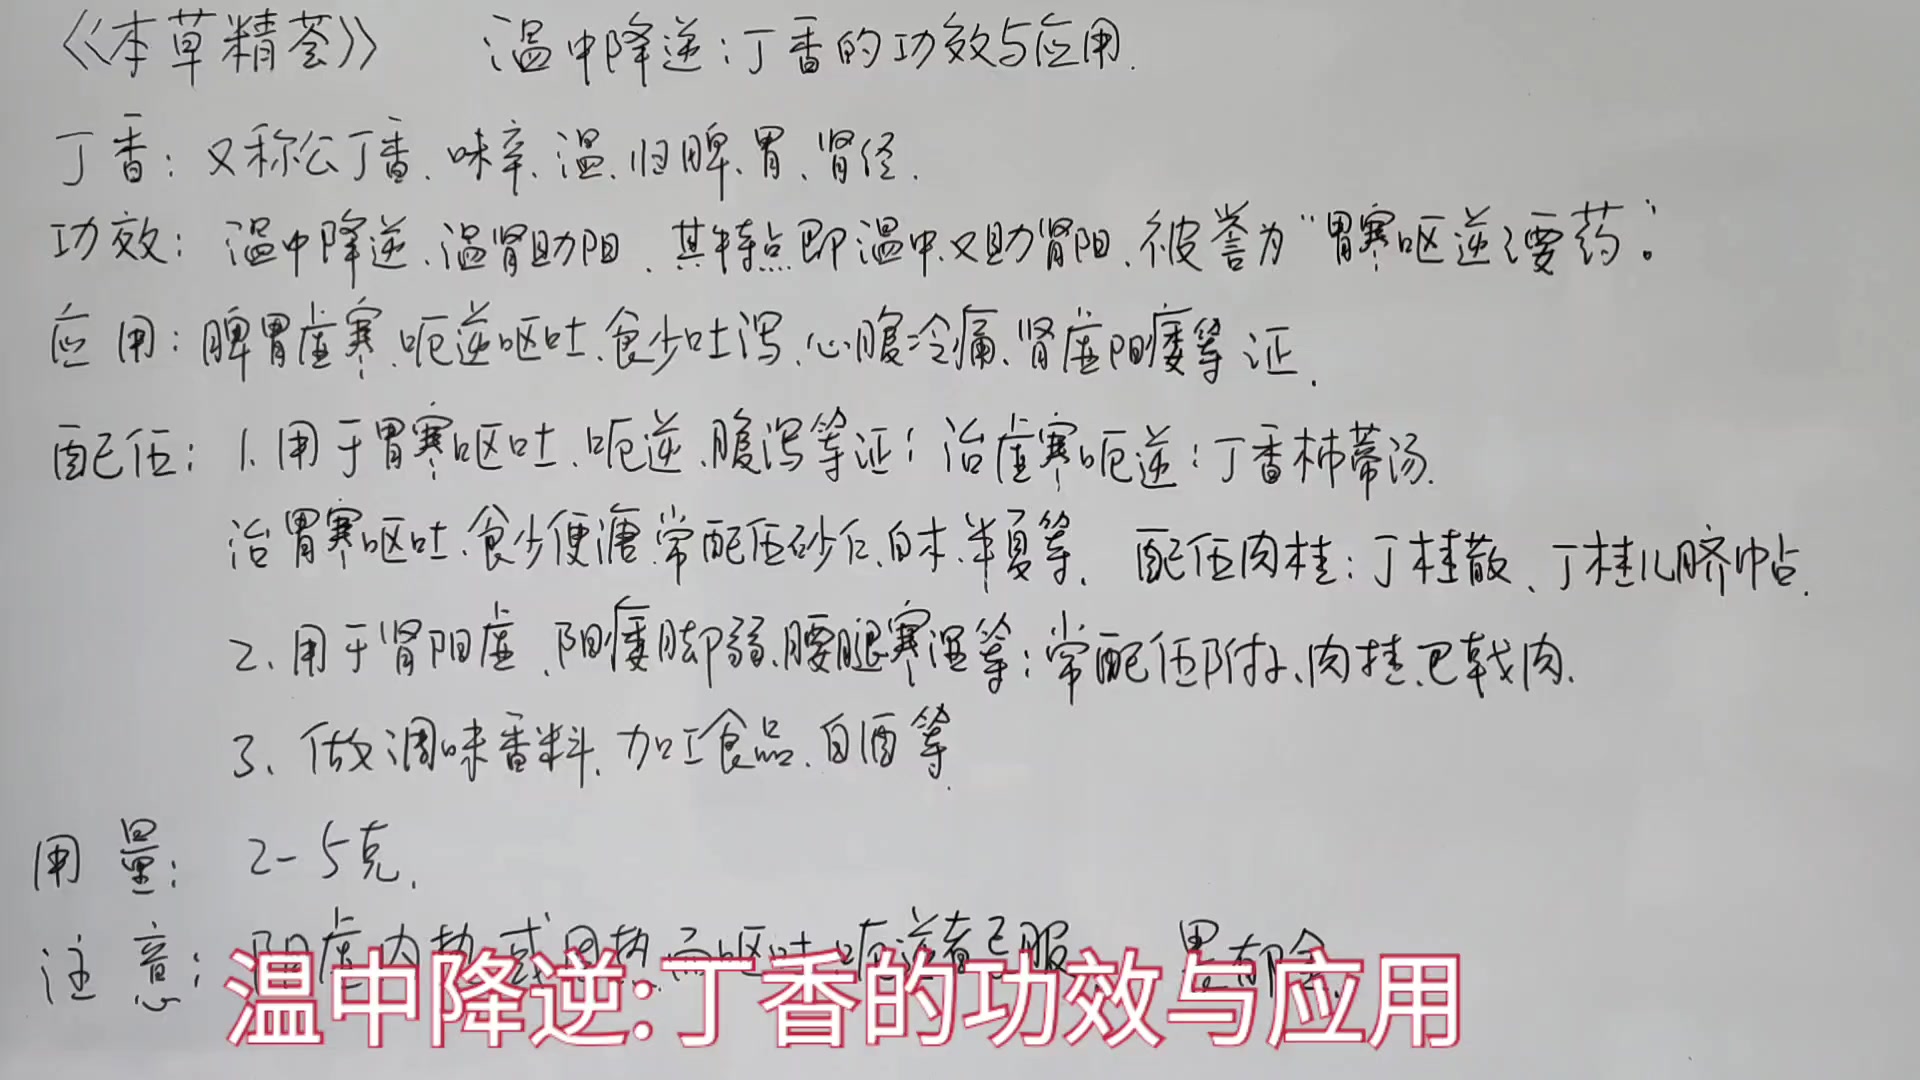 《本草精荟》 温中降逆:丁香的功效与应用.
丁香:又称公丁香、味辛、温、归脾、胃、肾经.
功效:温中降逆、温肾助阳、其特点即温中又助肾阳、被誉为“胃寒呕逆要药”。
应用:脾胃虚寒、呃逆呕吐、食少吐泻、心腹冷痛、肾虚阳痿等证.
配伍:1.用于胃寒呕吐、呃逆、腹泻等证:治虚寒呃逆:丁香柿蒂汤.
治胃寒呕吐、食少便溏.常配伍砂仁、白术、半夏等. 配伍肉桂:丁桂散、丁桂儿脐帖.
2.用于肾阳虚、阳痿脚弱、腰腿寒湿等:常配伍附子、肉桂、巴戟肉.
3.做调味香料、加工食品、白酒等.
用量:2-5克.
注意:阴虚内热或因热而呕吐呃逆者忌服 畏郁金.
温中降逆:丁香的功效与应用